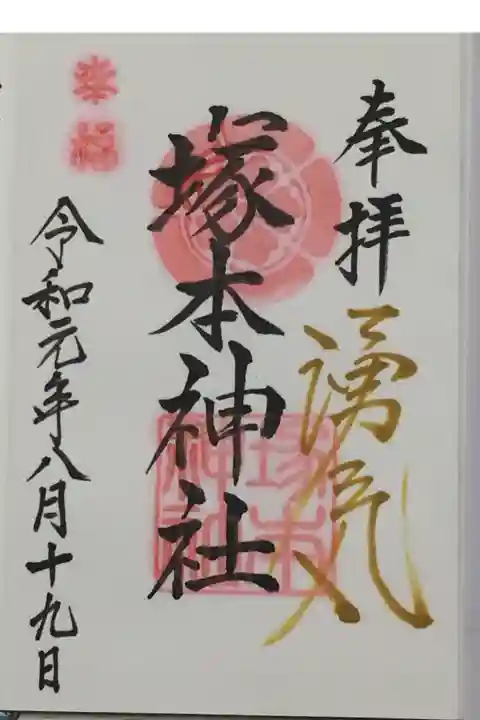 奉拝
湧気
塚本神社
幸福
令和元年八月十九日
塚本
神社